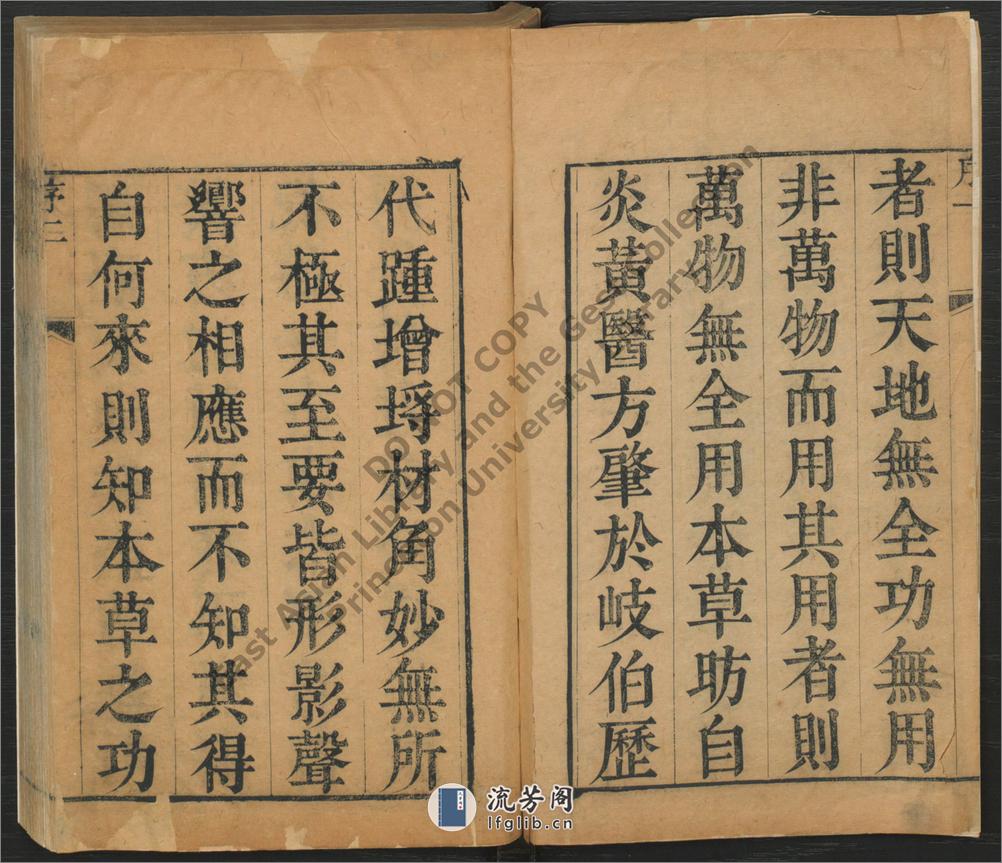 者則天地無全功無用
非萬物而用其用者則
萬物無全用本草昉自
炎黃醫方肇於岐伯歷
代踵增埓材角妙無所
不極其至要皆形影聲
響之相應而不知其得
自何來則知本草之功
序一
序二
DO NOT COPY
East Asian Library and the Gest Collection
Princeton University Library
流芳阁
lfglib.cn